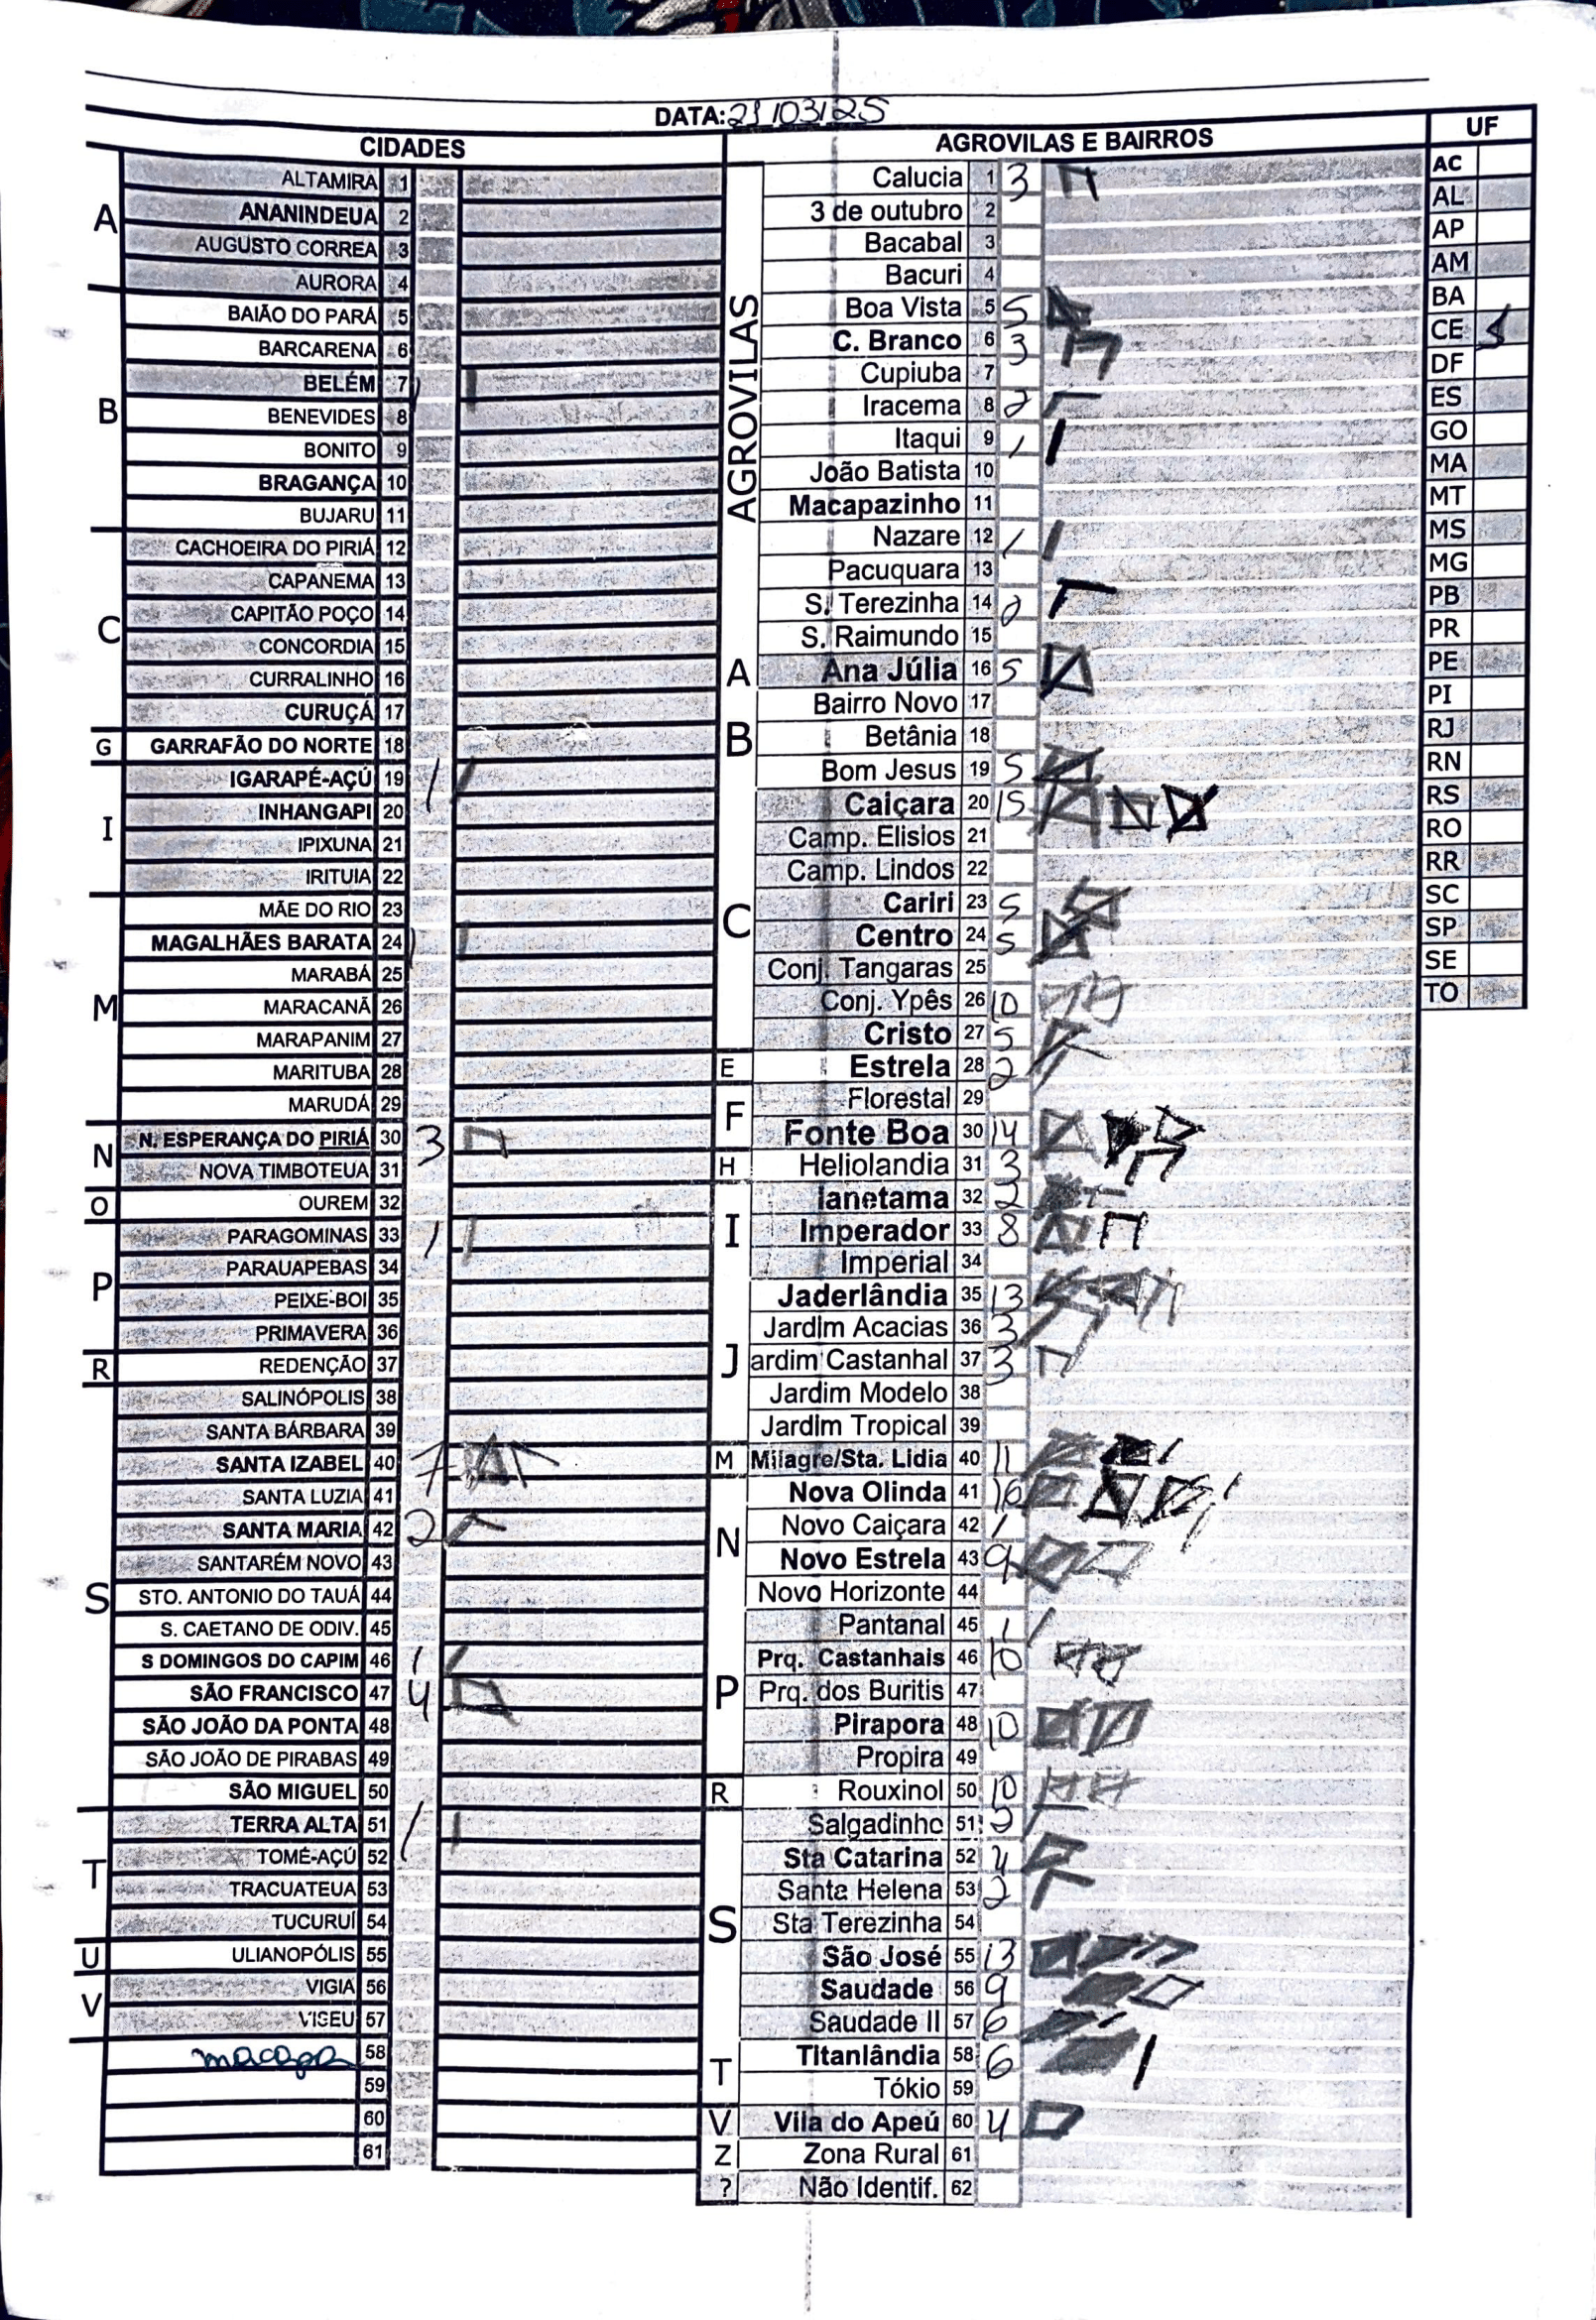 DATA: 21/03/25
CIDADES
A
ALTAMIRA 1
ANANINDEUA 2
AUGUSTO CORREA 3
AURORA 4
B
BAIÃO DO PARÁ 5
BARCARENA 6
BELÉM 7 1
BENEVIDES 8
BONITO 9
BRAGANÇA 10
BUJARU 11
C
CACHOEIRA DO PIRIÁ 12
CAPANEMA 13
CAPITÃO POÇO 14
CONCORDIA 15
CURRALINHO 16
CURUÇÁ 17
G
GARRAFÃO DO NORTE 18
I
IGARAPÉ-AÇÚ 19 1
INHANGAPI 20
IPIXUNA 21
IRITUIA 22
M
MÃE DO RIO 23
MAGALHÃES BARATA 24 1
MARABÁ 25
MARACANÃ 26
MARAPANIM 27
MARITUBA 28
MARUDÁ 29
N
N. ESPERANÇA DO PIRIÁ 30 3
NOVA TIMBOTEUA 31
O
OUREM 32
P
PARAGOMINAS 33 1
PARAUAPEBAS 34
PEIXE-BOI 35
PRIMAVERA 36
R
REDENÇÃO 37
S
SALINÓPOLIS 38
SANTA BÁRBARA 39
SANTA IZABEL 40 7
SANTA LUZIA 41
SANTA MARIA 42 2
SANTARÉM NOVO 43
STO. ANTONIO DO TAUÁ 44
S. CAETANO DE ODIV. 45
S DOMINGOS DO CAPIM 46 1
SÃO FRANCISCO 47 4
SÃO JOÃO DA PONTA 48
SÃO JOÃO DE PIRABAS 49
SÃO MIGUEL 50
T
TERRA ALTA 51 1
TOMÉ-AÇÚ 52
TRACUATEUA 53
TUCURUÍ 54
U
ULIANOPÓLIS 55
V
VIGIA 56
VISEU 57
macapa 58
59
60
61
AGROVILAS E BAIRROS
AGROVILAS
Calucia 1 3
3 de outubro 2
Bacabal 3
Bacuri 4
Boa Vista 5 5
C. Branco 6 3
Cupiuba 7
Iracema 8 2
Itaqui 9 1
João Batista 10
Macapazinho 11
Nazare 12 1
Pacuquara 13
S. Terezinha 14 2
S. Raimundo 15
A
Ana Júlia 16 5
B
Bairro Novo 17
Betânia 18
Bom Jesus 19 5
C
Caiçara 20 15
Camp. Elisios 21
Camp. Lindos 22
Cariri 23 5
Centro 24 5
Conj. Tangaras 25
Conj. Ypês 26 10
Cristo 27 5
E
Estrela 28 2
F
Florestal 29
Fonte Boa 30 14
H
Heliolandia 31 3
I
Ianetama 32 2
Imperador 33 8
Imperial 34
J
Jaderlândia 35 13
Jardim Acacias 36 3
ardim Castanhal 37 3
Jardim Modelo 38
Jardim Tropical 39
M
Milagre/Sta. Lidia 40 11
N
Nova Olinda 41 16
Novo Caiçara 42 1
Novo Estrela 43 9
Novo Horizonte 44
P
Pantanal 45 1
Prq. Castanhais 46 10
Prq. dos Buritis 47
Pirapora 48 10
Propira 49
R
Rouxinol 50 10
S
Salgadinho 51
Sta Catarina 52 4
Santa Helena 53 2
Sta Terezinha 54
São José 55 13
Saudade 56 9
Saudade II 57 6
T
Titanlândia 58 6
Tókio 59
V
Vila do Apeú 60 4
Z
Zona Rural 61
?
Não Identif. 62
UF
AC
AL
AP
AM
BA
CE
DF
ES
GO
MA
MT
MS
MG
PB
PR
PE
PI
RJ
RN
RS
RO
RR
SC
SP
SE
TO